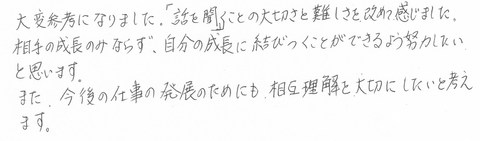 大変参考になりました。「話を聞く」ことの大切さと難しさを改めて感じました。
相手の成長のみならず、自分の成長に結びつくことができるよう努力したい
と思います。
また、今後の仕事の発展のためにも、相互理解を大切にしたいと考え
ます。